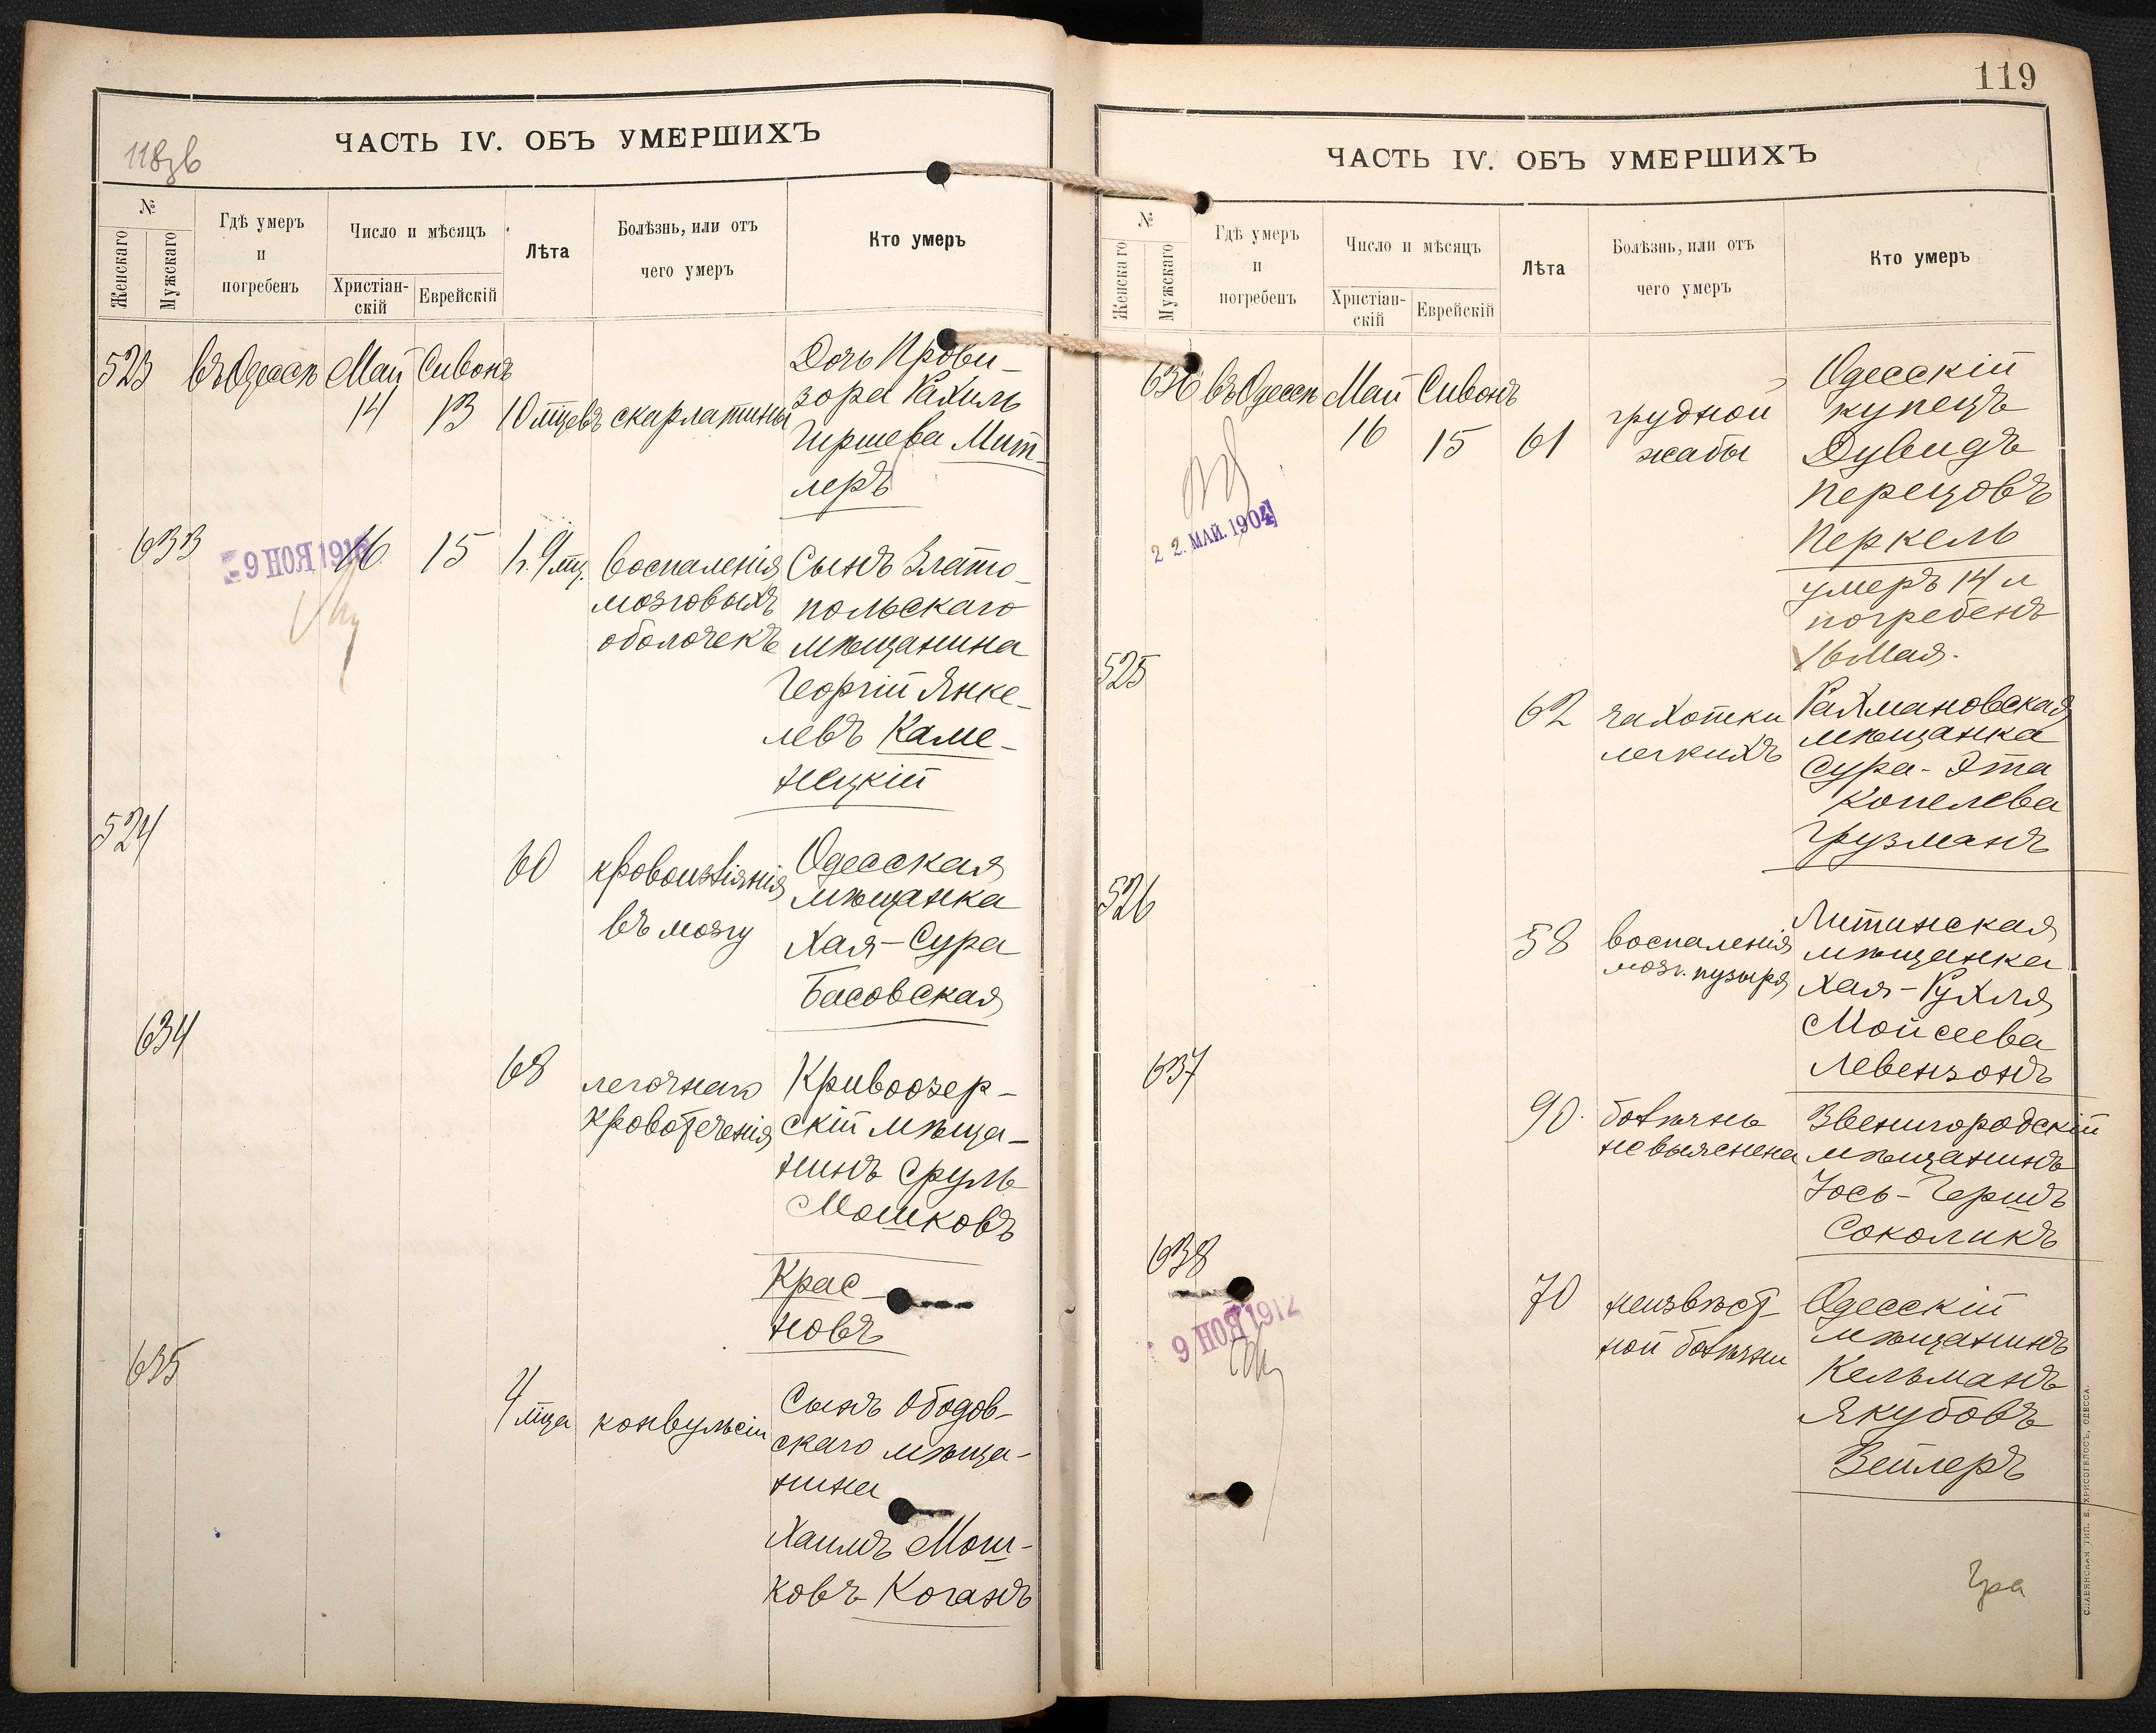 118зв
ЧАСТЬ IV. ОБЪ УМЕРШИХЪ
№
Женскаго
Мужскаго
Гдѣ умеръ
и
погребенъ
Число и мѣсяцъ
Христіан-
скій
Еврейскій
Лѣта
Болѣзнь, или отъ
чего умеръ
Кто умеръ
523
въ Одессѣ
Май
14
Сивонъ
13
10 мцевъ
скарлатины
Дочь Прови-
зора Рахиль
Гиршева Мит-
леръ
633
9 НОЯ 191
16
15
1г. 9 мц.
воспаленія
мозговыхъ
оболочекъ
Сынъ Злато-
польскаго
мѣщанина
Георгій Янке-
левъ Каме-
нецкій
524
60
кровоизліянія
въ мозгу
Одесская
мѣщанка
Хая-Сура
Басовская
634
68
легочнаго
кровотеченія
Кривоозер-
скій мѣща-
нинъ Сруль
Мошковъ
Крас-
новъ
635
4 мца
конвульсіи
Сынъ Ободов-
скаго мѣща-
нина
Хаимъ Мош-
ковъ Коганъ
119
ЧАСТЬ IV. ОБЪ УМЕРШИХЪ
№
Женскаго
Мужскаго
Гдѣ умеръ
и
погребенъ
Число и мѣсяцъ
Христіан-
скій
Еврейскій
Лѣта
Болѣзнь, или отъ
чего умеръ
Кто умеръ
636
въ Одессѣ
Май
16
Сивонъ
15
61
грудной
жабы
Одесскій
купецъ
Дувидъ
Перецовъ
Перкель
умеръ 14 и
погребенъ
16 Мая.
22. МАЙ. 1904
525
62
чахотки
легкихъ
Рахмановская
мѣщанка
Сура-Эта
Копелева
Грузманъ
526
58
воспаленія
моч. пузыря
Литинская
мѣщанка
Хая-Рухля
Мойсеева
Левензонъ
637
90.
болѣзнь
не выяснена
Звенигородскій
мѣщанинъ
Іось-Гершъ
Соколикъ
638
9 НОЯ 1912
70
неизвѣст-
ной болѣзни
Одесскій
мѣщанинъ
Кельманъ
Якубовъ
Вейлеръ
СЛАВЯНСКАЯ ТИП. Е. ХРИСОГЕЛОСЪ, ОДЕССА.